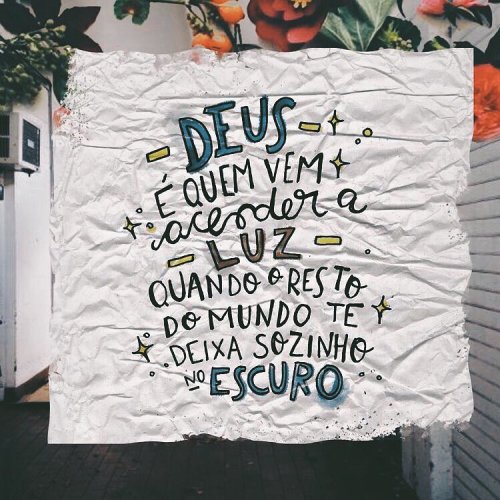 DEUS
É QUEM VEM
acender a
LUZ
QUANDO O RESTO
DO MUNDO TE
DEIXA SOZINHO
NO ESCURO